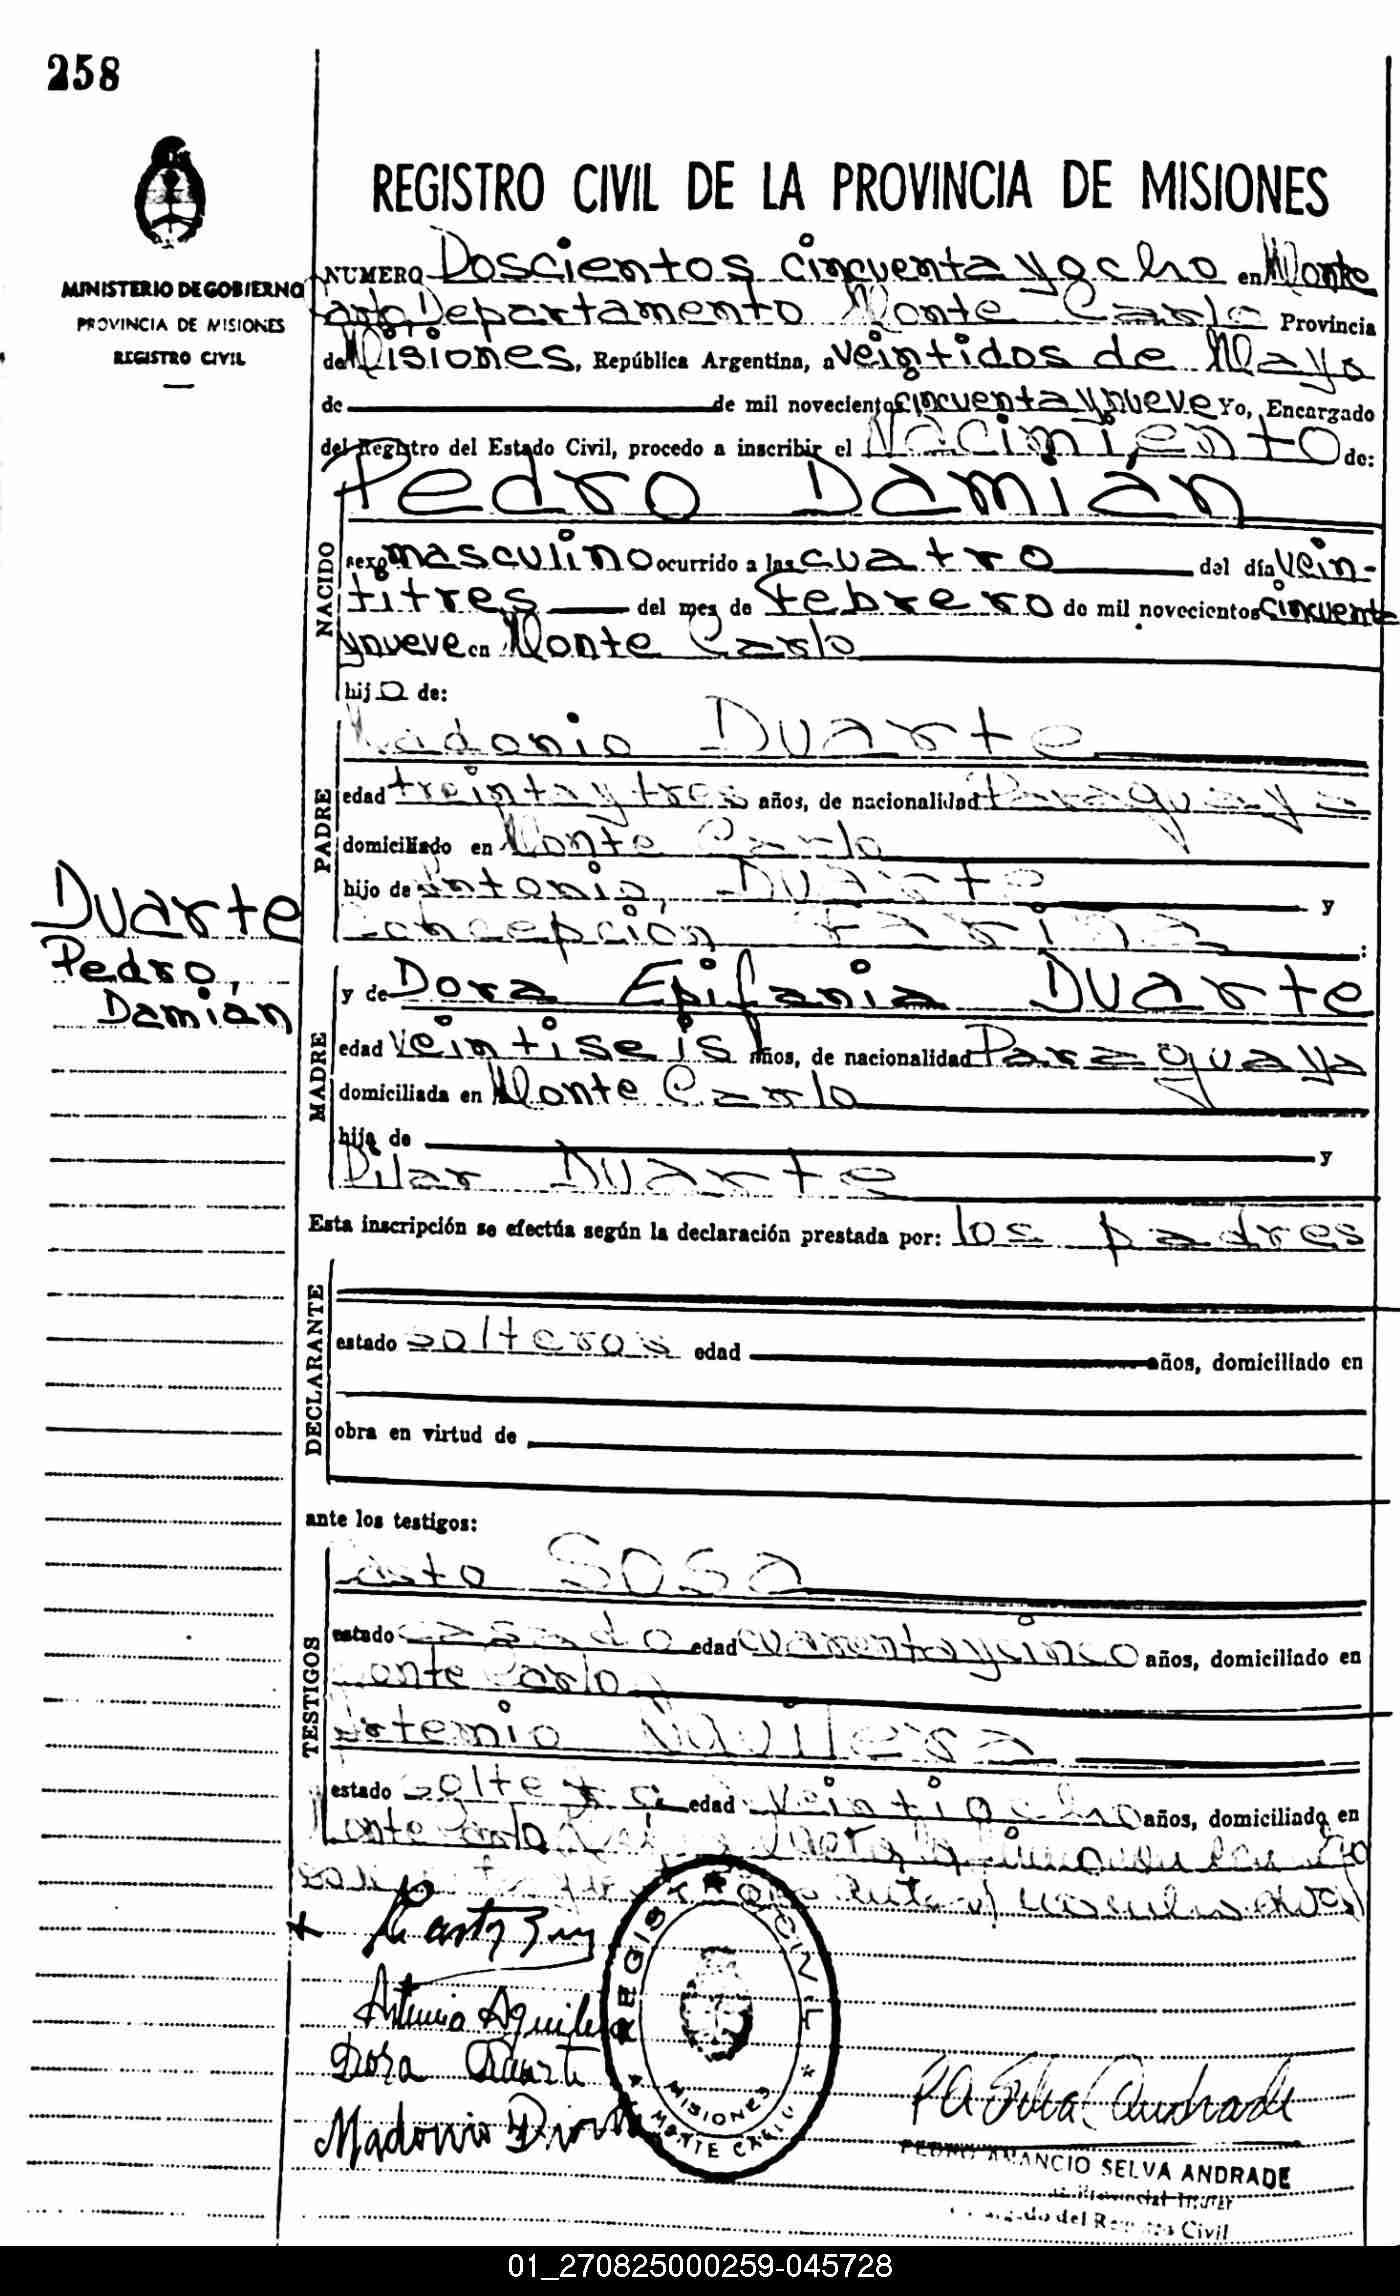 258
REGISTRO CIVIL DE LA PROVINCIA DE MISIONES
MINISTERIO DE GOBIERNO
PROVINCIA DE MISIONES
REGISTRO CIVIL
NUMERO Doscientos cincuenta y ocho en Monte
Carlo Departamento Monte Carlo Provincia
de Misiones, República Argentina, a veintidos de Mayo
de de mil novecientos cincuenta y nueve Yo, Encargado
del Registro del Estado Civil, procedo a inscribir el Nacimiento de:
Pedro Damián
NACIDO
sexo masculino ocurrido a las cuatro del día vein-
titres del mes de Febrero de mil novecientos cincuenta
y nueve en Monte Carlo
hijo de:
PADRE
Madonio Duarte
edad treinta y tres años, de nacionalidad Paraguaya
domiciliado en Monte Carlo
hijo de Antonio Duarte y
Concepción Fariña :
Duarte
Pedro,
Damián
MADRE
y de Dora Epifania Duarte
edad veintiseis años, de nacionalidad Paraguaya
domiciliada en Monte Carlo
hija de y
Pilar Duarte
Esta inscripción se efectúa según la declaración prestada por: los padres
DECLARANTE
estado solteros edad años, domiciliado en
obra en virtud de
ante los testigos:
TESTIGOS
Casto Sosa
estado casado edad cuarenta y cinco años, domiciliado en
Monte Carlo
Artemio Aguilera
estado soltero edad veintiocho años, domiciliado en
Monte Carlo
REGISTRO CIVIL
MISIONES
MONTE CARLO
Dora Duarte
Madonio
P A Selva Andrade
PEDRO AMANCIO SELVA ANDRADE
Encargado del Registro Civil
01_270825000259-045728